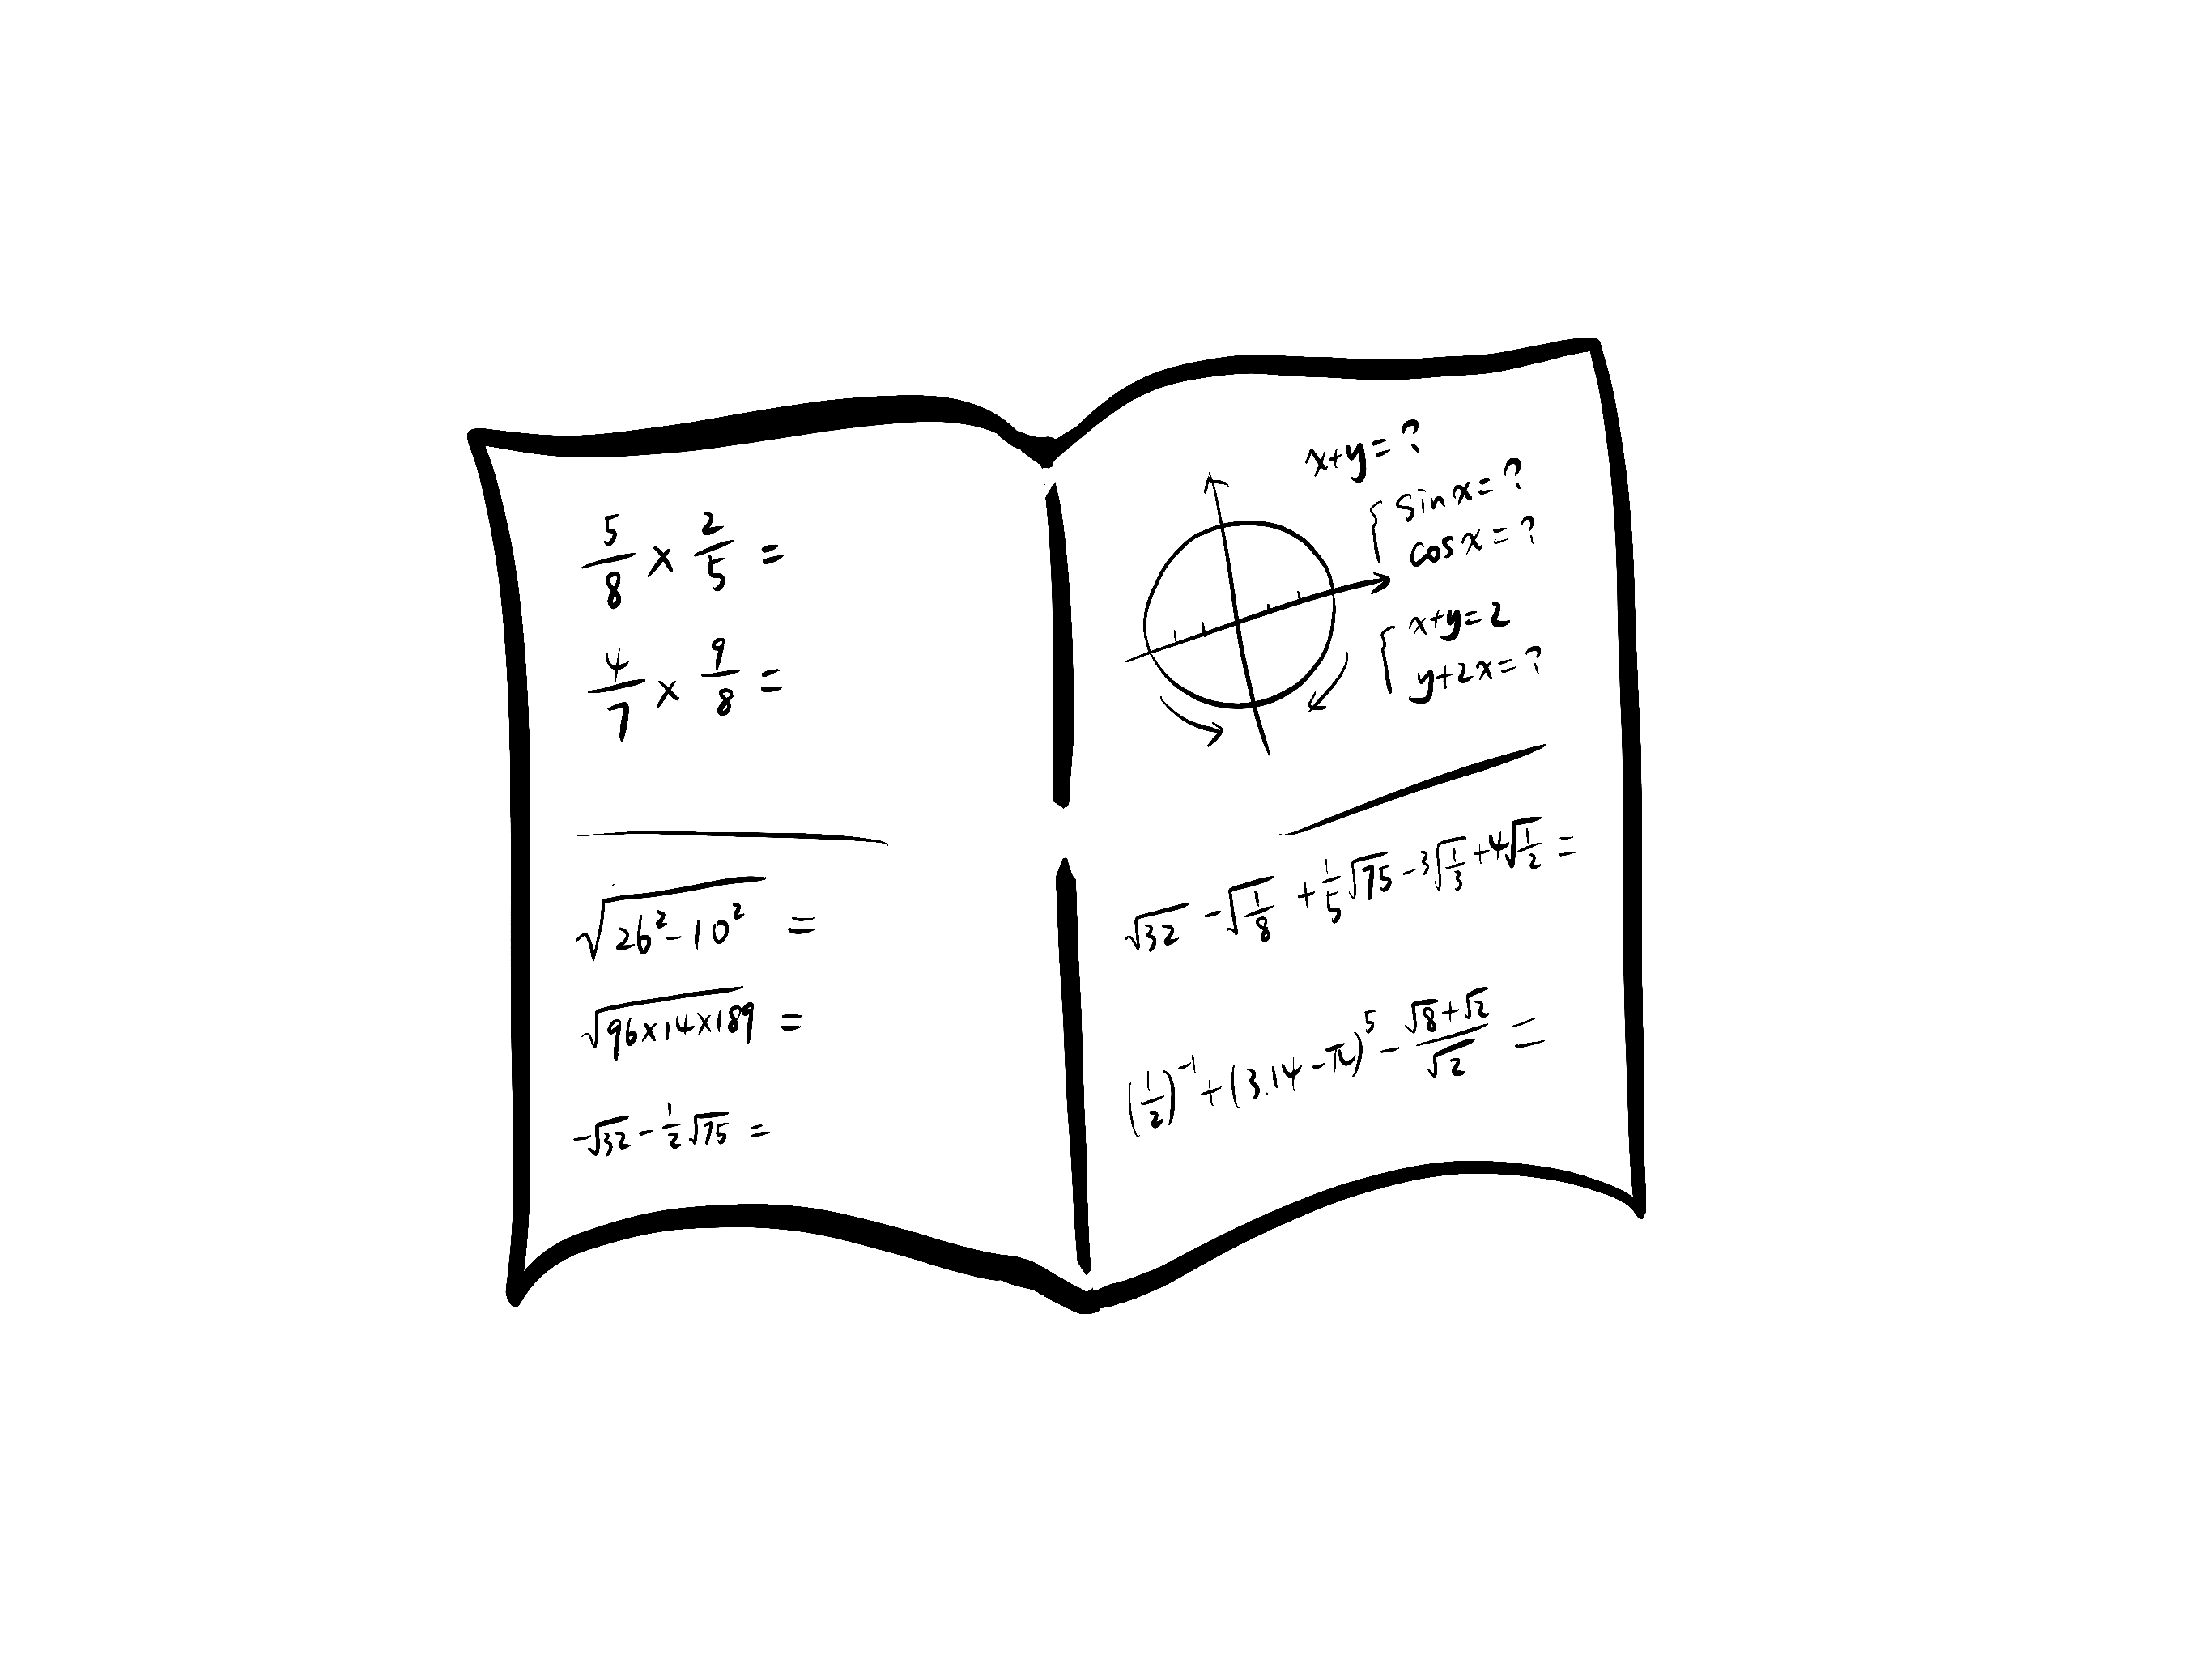 5/8 × 2/5 =
4/7 × 9/8 =
√(26²-10²) =
√(96×14×189) =
-√32 - 1/2√75 =
x+y=?
{ sinx=?
cosx=?
{ x+y=2
y+2x=?
√32 - √(1/8) + 1/5√75 - 3√(1/3) + 4√(1/2) =
(1/2)⁻¹ + (3.14-π)⁵ - (√8+√2)/√2 =